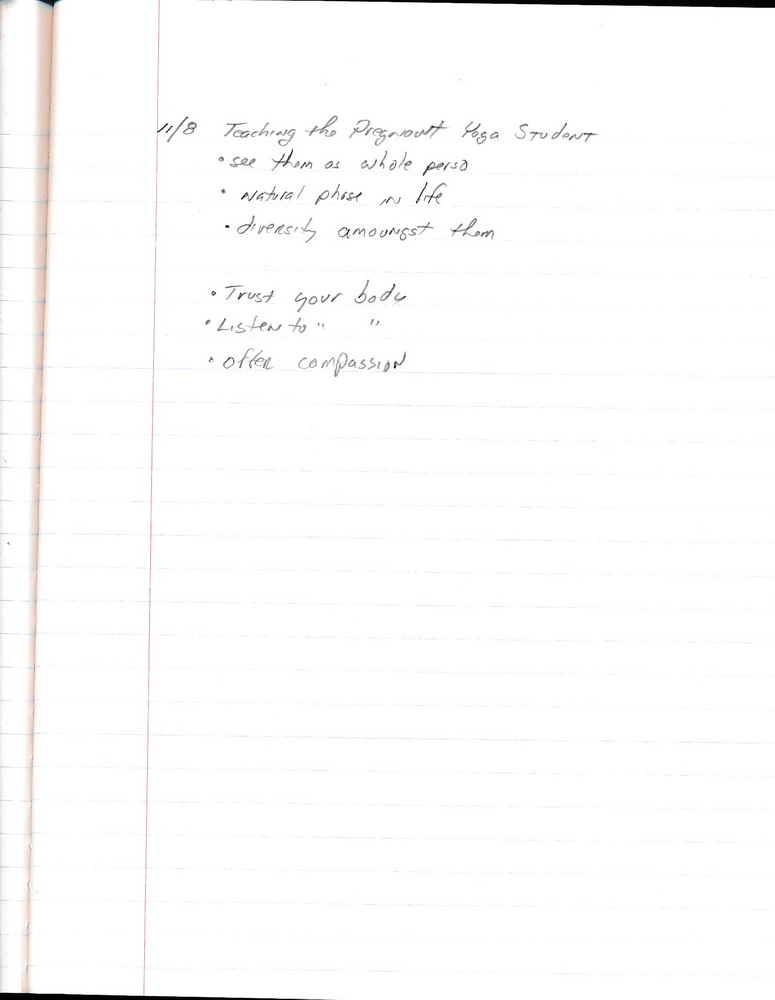 11/8 Teaching the Pregnant Yoga Student
• see them as whole perso
• natural phase in life
• diversity amoungst them
• Trust your body
• Listen to " "
• offer compassion